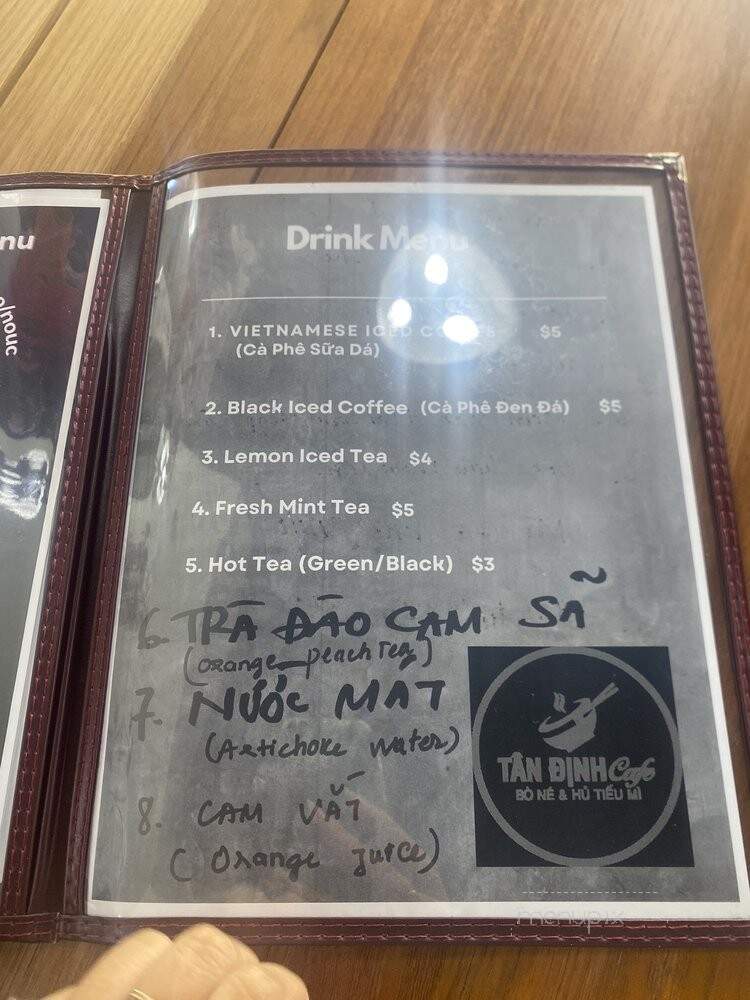 nu
Drink Menu
1. VIETNAMESE ICED COFFEE $5
(Cà Phê Sữa Dá)
2. Black Iced Coffee (Cà Phê Đen Đá) $5
3. Lemon Iced Tea $4
4. Fresh Mint Tea $5
5. Hot Tea (Green/Black) $3
6. TRÀ ĐÀO CAM SÃ
(orange peach Tea)
7. NƯỚC MAT
(Artichoke water)
8. CAM VẮT
(Orange juice)
TÂN ĐỊNH Cafe
BÒ NÉ & HỦ TIẾU MÌ
menupix